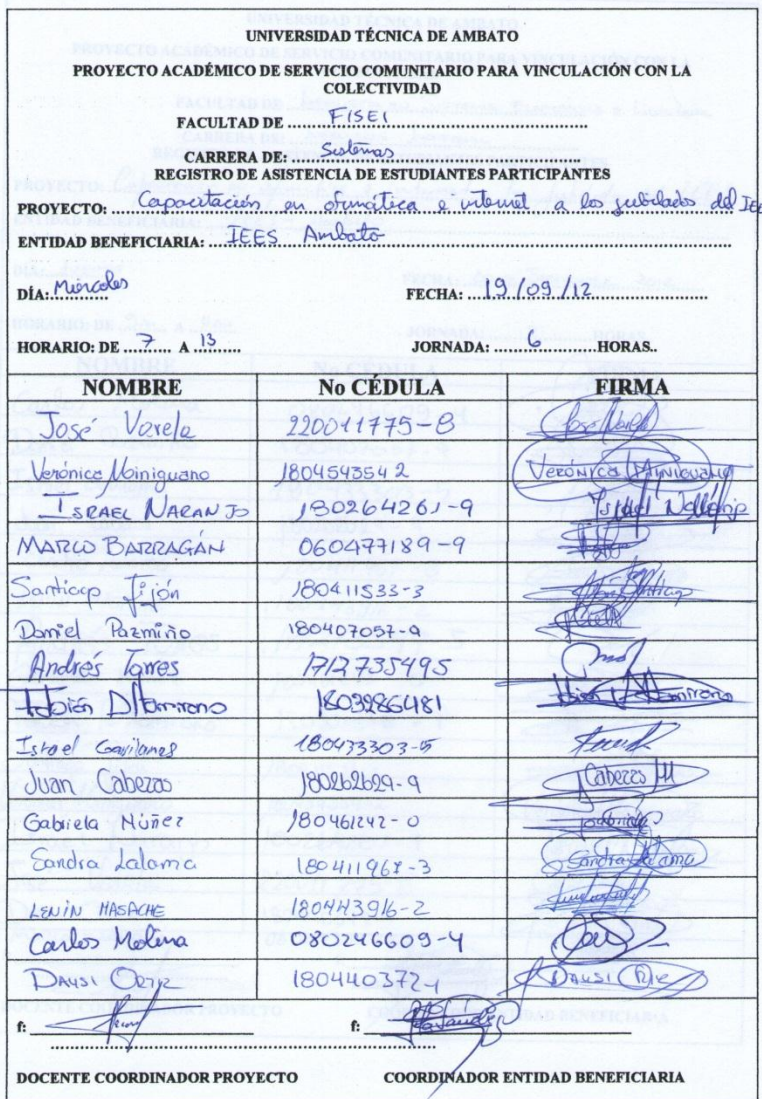 UNIVERSIDAD TÉCNICA DE AMBATO
PROYECTO ACADÉMICO DE SERVICIO COMUNITARIO PARA VINCULACIÓN CON LA
COLECTIVIDAD
FACULTAD DE FISEI
CARRERA DE: Sistemas
REGISTRO DE ASISTENCIA DE ESTUDIANTES PARTICIPANTES
PROYECTO: Capacitación en ofimática e internet a los jubilados del
ENTIDAD BENEFICIARIA: IEES Ambato
DÍA: Miércoles FECHA: 19/09/12
HORARIO: DE 7 A 13 JORNADA: 6 HORAS..
NOMBRE No CÉDULA FIRMA
José Varela 220011775-8
Verónica Mainiguano 1804543542 VERÓNICA
ISRAEL NARANJO 180264261-9 Israel
MARCO BARRAGÁN 060477189-9
Santiago Tijón 180411533-3
Daniel Pazmiño 180407057-9
Andrés Torres 1712735495
1803286481
Israel Gavilanes 180433303-5
Juan Cabezas 180262629-9
Gabriela Núñez 180461242-0
Sandra Lalama 180411967-3 Sandra
LENIN MASACHE 180443916-2
Carlos Molina 080246609-4
DAUSI ORTIZ 180440372-1 DAUSI
f: f:
DOCENTE COORDINADOR PROYECTO COORDINADOR ENTIDAD BENEFICIARIA